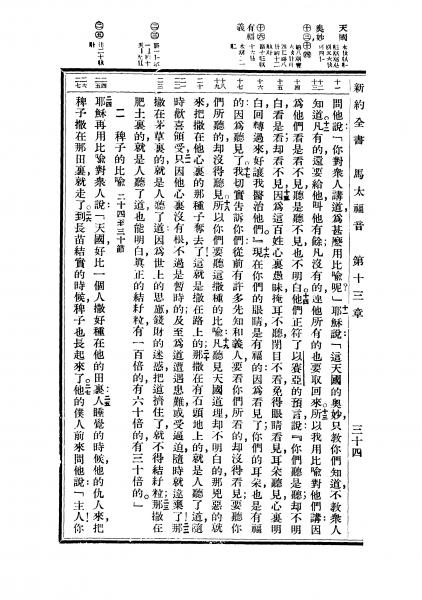 新約全書 馬太福音 第十三章 三十四
天國
奧妙
十三 十四
十四
有福
義
問他說「你對衆人講道爲甚麼用比喩呢」耶穌說「這天國的奧妙只敎你們知道不敎衆人
知道凡有的還要給他叫他有餘凡沒有的連他所有的也要取回來所以我用比喩對他們講因
爲他們看是看不見聽是聽不見也不明白他們正符了以賽亞的預言說『你們聽是聽却不明
白看是看却不見因爲這百姓心裏愚昧掩耳不聽閉目不看免得眼睛看見耳朶聽見心裏明
白回轉過來好讓我醫治他們』現在你們的眼睛是有福的因爲看見了你們的耳朶也是有福
的因爲聽見了我切實告訴你們從前有許多先知和義人要看你們所看的却沒得看見要聽你
們所聽的却沒得聽見所以你們要聽這撒種的比喩凡聽見天國道理却不明白的那兇惡的就
來把撒在他心裏的那種子奪去了這就是撒在路上的那撒在有石頭地上的就是人聽了道隨
時歡喜領受只因他心裏沒有根不過是暫時的及至爲道遭遇患難或受逼迫隨時就違棄了那
撒在茅草裏的就是人聽了道因爲世上的思慮錢財的迷惑把道擠住了就不得結籽粒那撒在
肥土裏的就是人聽了道也能明白眞正的結籽粒有一百倍的有六十倍的有三十倍的」
二 稗子的比喩 二十四至三十節
耶穌再用比喩對衆人說「天國好比一個人撒好種在他的田裏人睡覺的時候他的仇人來把
稗子撒在那田裏就走了到長苗結實的時候稗子也長起來了他的僕人前來問他說「主人你